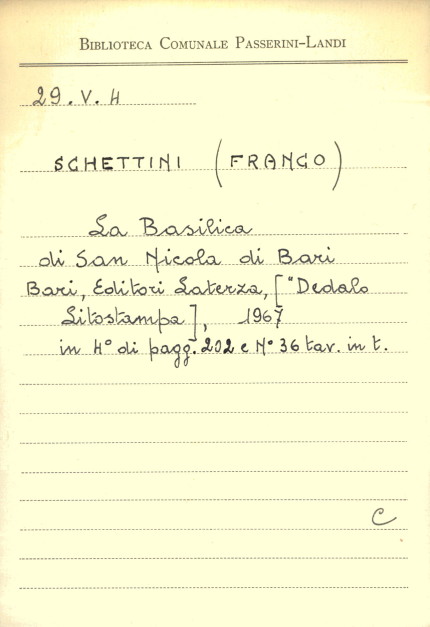 BIBLIOTECA COMUNALE PASSERINI-LANDI
29. V. H
SCHETTINI (FRANCO)
La Basilica
di San Nicola di Bari
Bari, Editori Laterza, ["Dedalo
Litostampa], 1967
in 4° di pagg. 202 e N° 36 tav. in t.
C